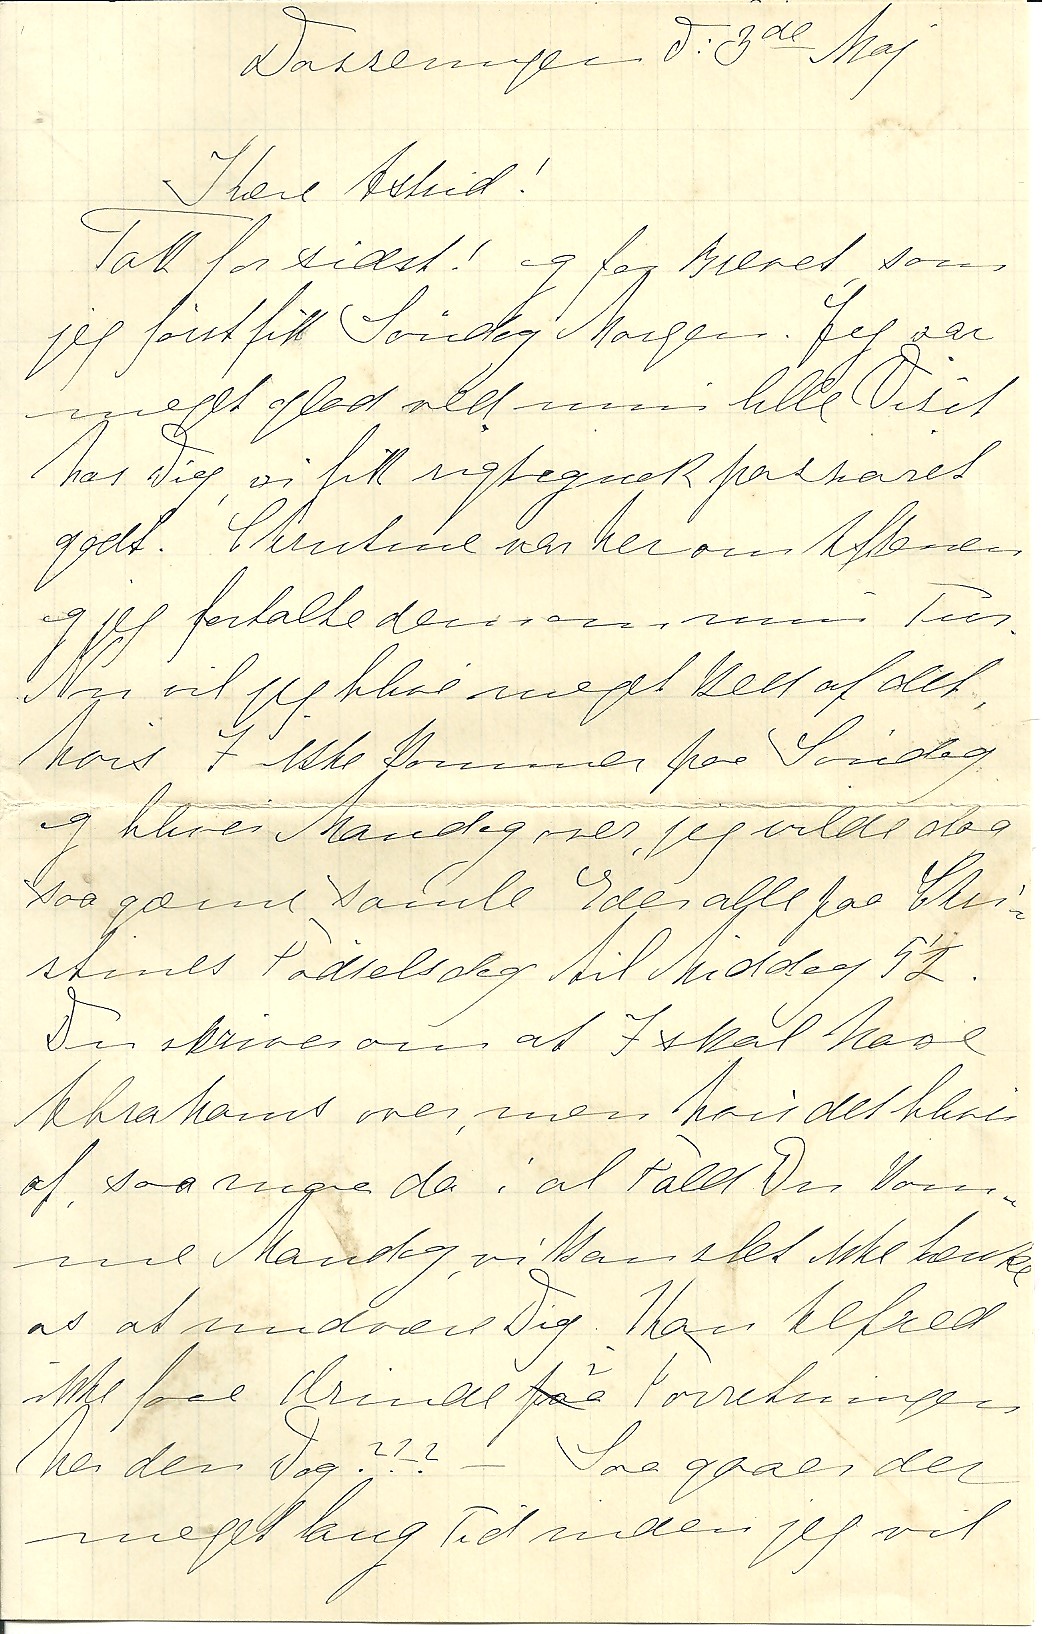 Dosseringen d: 3de Maj
Kære Astrid!
Tak for sidst! og for Brevet, som
jeg først fik Søndag Morgen. Jeg var
meget glad ved min lille Visit
hos Dig, vi fik rigtignok passiaret
godt. Christine var her om Aftenen
og jeg fortalte dem om min Tur.
Nu vil jeg blive meget ked af det,
hvis I ikke kommer paa Søndag
og bliver Mandag over, jeg vilde da
saa gærne samle Eder alle paa Chri-
stines Fødselsdag til Middag 5½.
Du skriver om at I skal have
Abrahams over, men hvis det bliver
af, saa maa da i al Fald Du kom-
me Mandag, vi kan slet ikke tænke
os at undvære Dig. Kan Alfred
ikke faae Ærinde i Forretningen
her den Dag??? — Saa gaaer der
meget lang Tid inden jeg vil